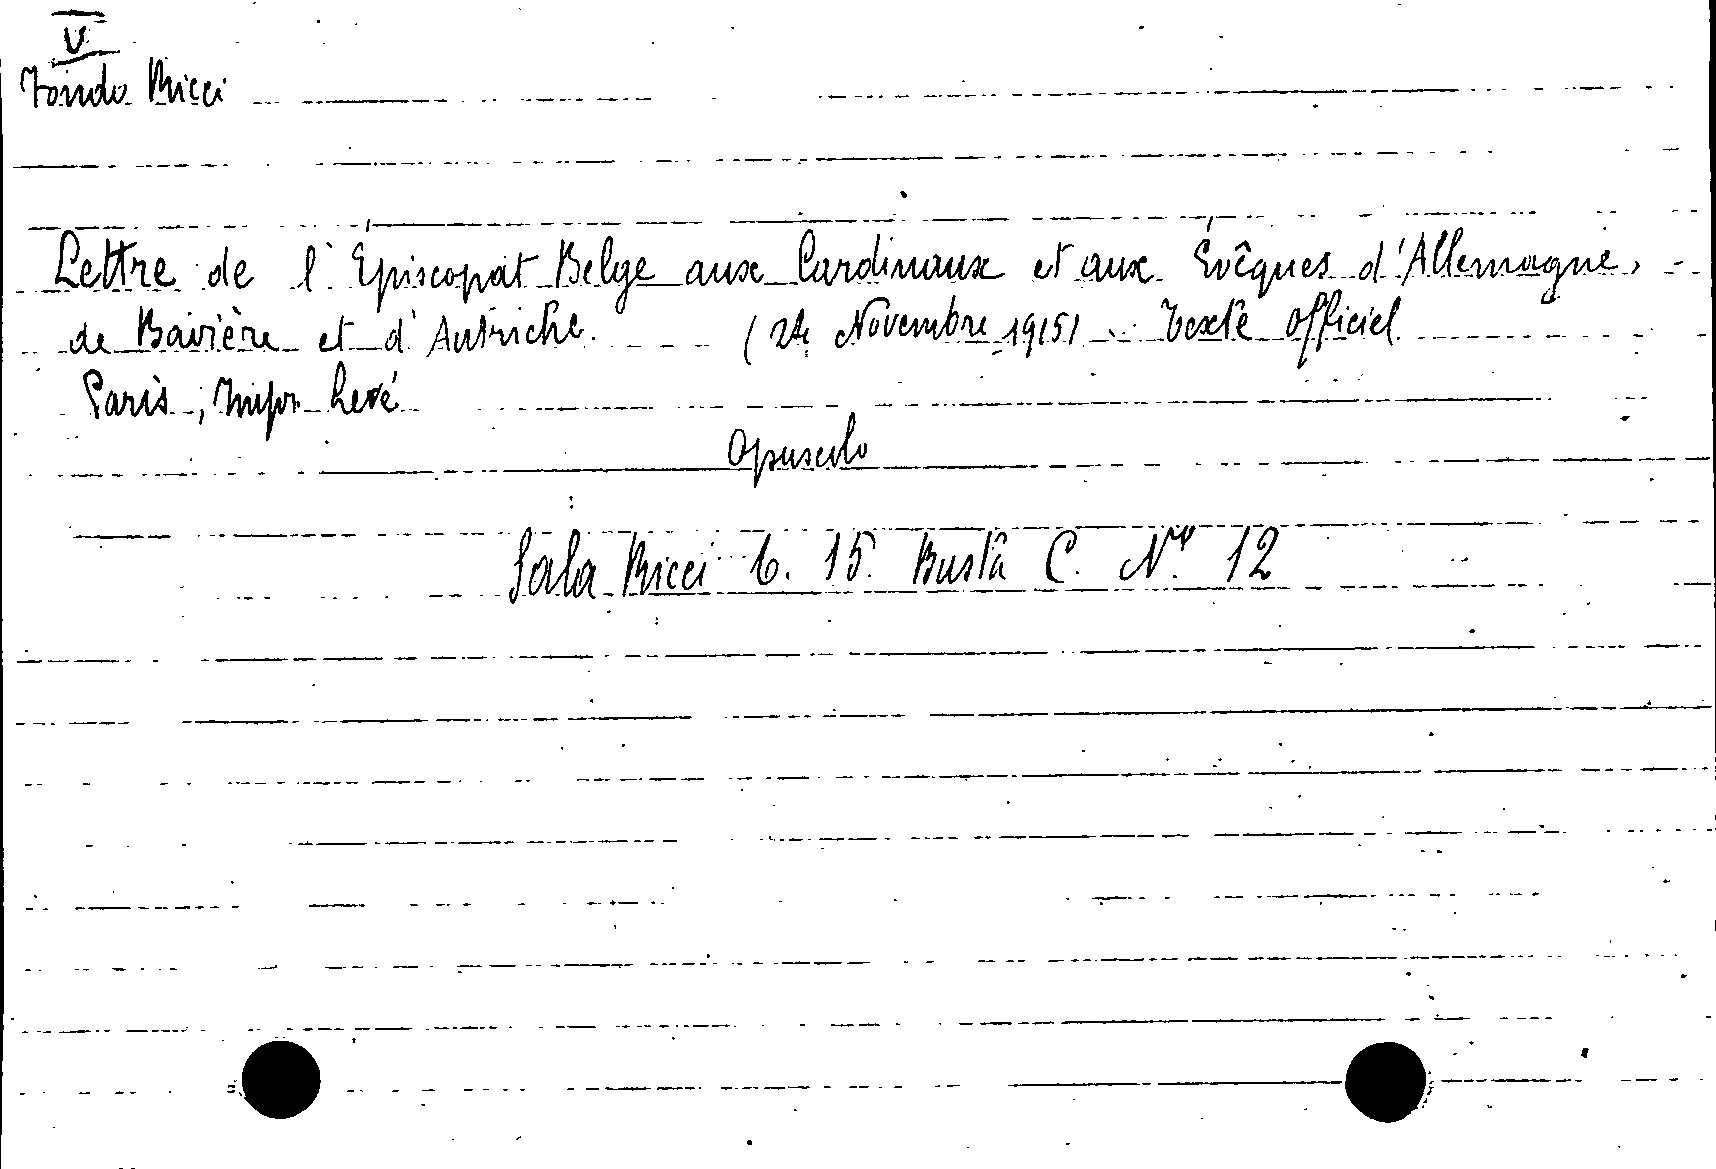 V
Fondo Ricci
Lettre de l'Épiscopat Belge aux Cardinaux et aux Évêques d'Allemagne,
de Bavière et d'Autriche. (24 Novembre 1915) - Texte officiel
Paris, Impr. Levé
Opuscolo
Sala Ricci 6. 15. Busta C. Nº 12